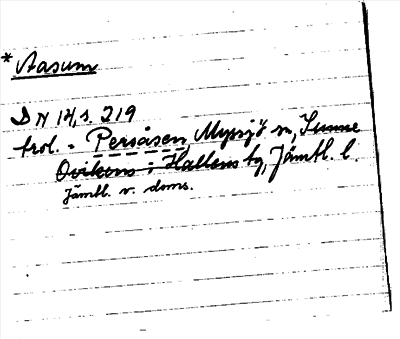 * Aasum
DN 14, s. 219
trol. = Persåsen, Myssjö sn, Sunne
Ovikens i Hallens tg, Jämtl. l.
Jämtl. v. doms.